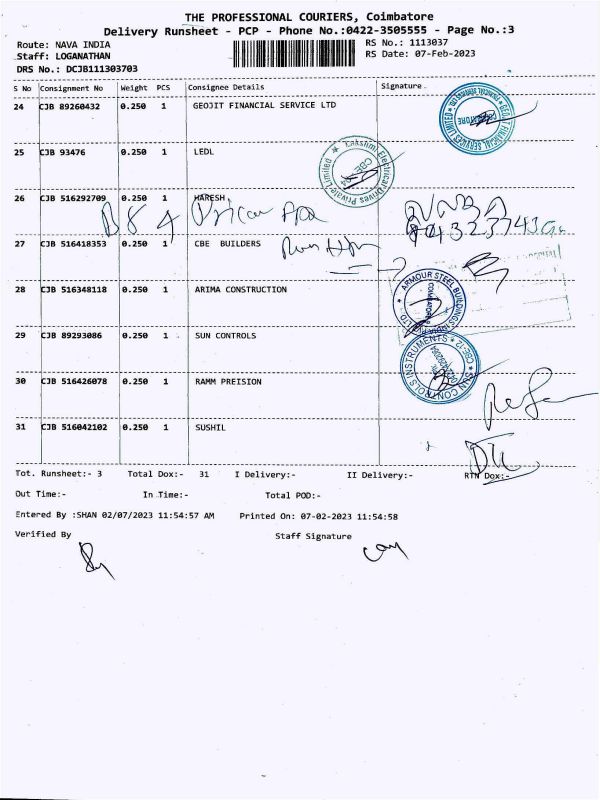 THE PROFESSIONAL COURIERS, Coimbatore
Delivery Runsheet - PCP - Phone No.:0422-3505555 - Page No.:3
Route: NAVA INDIA
RS No.: 1113037
Staff: LOGANATHAN
RS Date: 07-Feb-2023
DRS No.: DCJB111303703
S No Consignment No Weight PCS Consignee Details Signature
24 CJB 89260432 0.250 1 GEOJIT FINANCIAL SERVICE LTD
COIMBATORE
25 CJB 93476 0.250 1 LEDL
Lakshmi Electrical Drives Private Limited
CBE
26 CJB 516292709 0.250 1 HARESH
27 CJB 516418353 0.250 1 CBE BUILDERS
28 CJB 516348118 0.250 1 ARIMA CONSTRUCTION
ARMOUR STEEL BUILDINGS
29 CJB 89293086 0.250 1 SUN CONTROLS
SUN CONTROLS INSTRUMENTS CBE-12
30 CJB 516426078 0.250 1 RAMM PREISION
31 CJB 516042102 0.250 1 SUSHIL
Tot. Runsheet:- 3 Total Dox:- 31 I Delivery:- II Delivery:- RTN Dox:-
Out Time:- In Time:- Total POD:-
Entered By :SHAN 02/07/2023 11:54:57 AM Printed On: 07-02-2023 11:54:58
Verified By Staff Signature